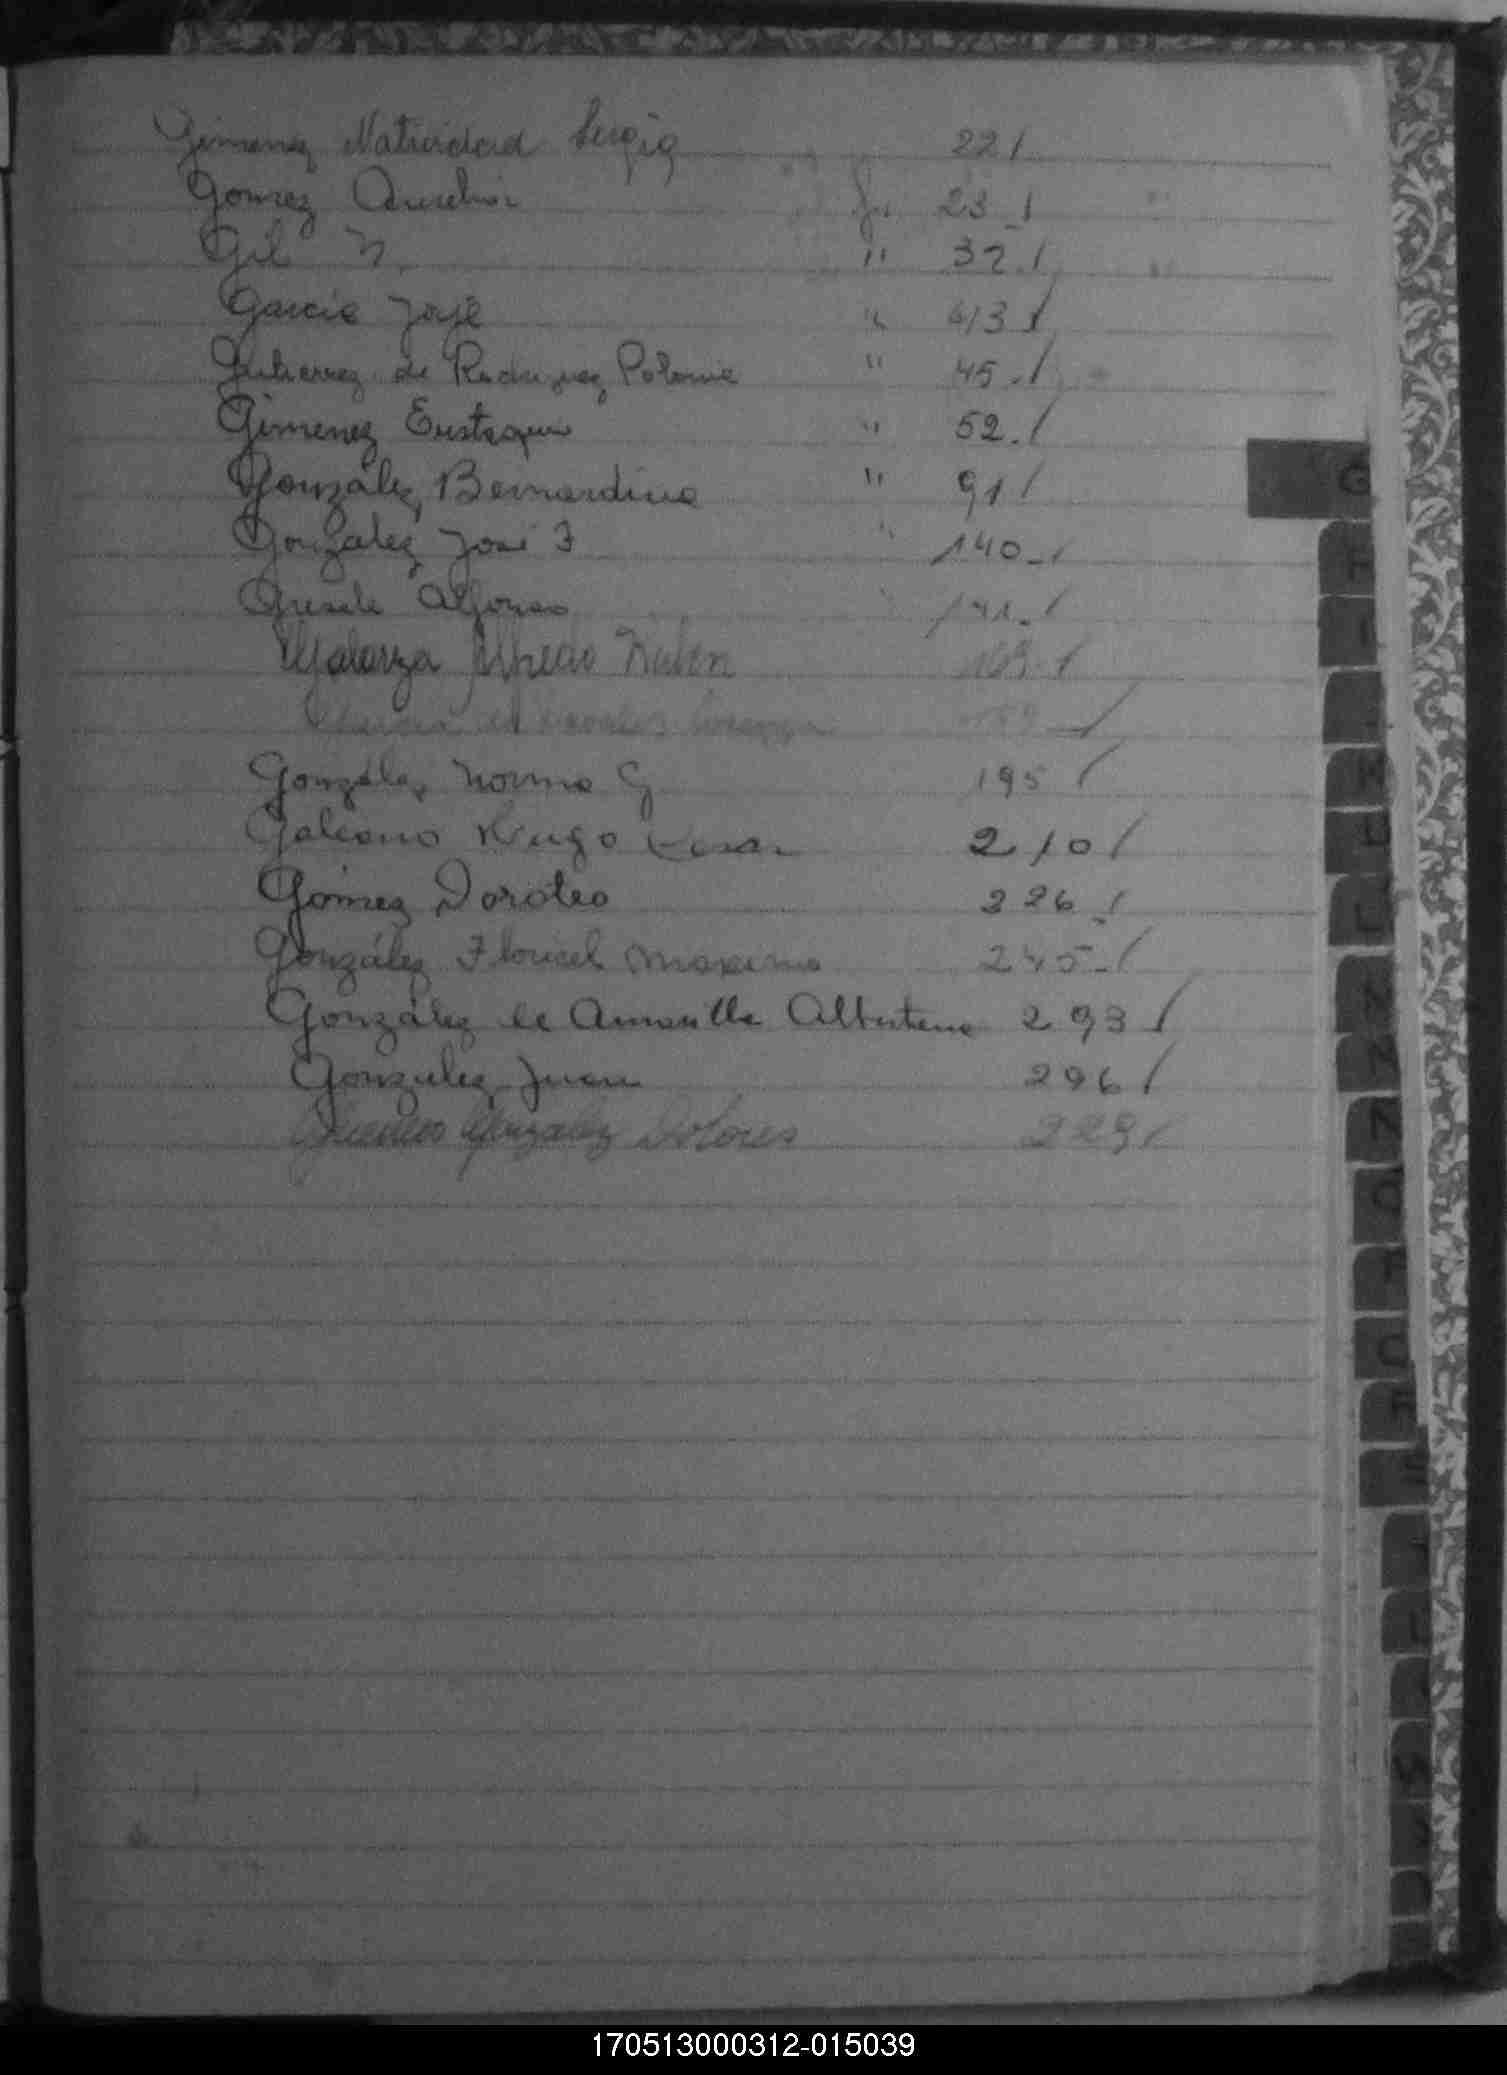 Gimenez Natividad Sergia 22 /
Gomez Aurelia 23 /
Gil N. " 32 /
Garcia José " 43 /
Gutierrez de Rodriguez Polonia " 45. /
Gimenez Eustaquio " 52. /
González Bernardina " 91 /
González José F " 140 - /
Alfonso 141 - /
Galarza Alfredo Ruben 163 - /
González Norma G 195 /
Galeano Hugo Cesar 210 /
Gómez Doroteo 226 - /
González Floricel Maxima 245 - /
González de Amarilla Albertina 293 /
Gonzalez Juan 296 /
González Dolores 229 /
G
170513000312-015039